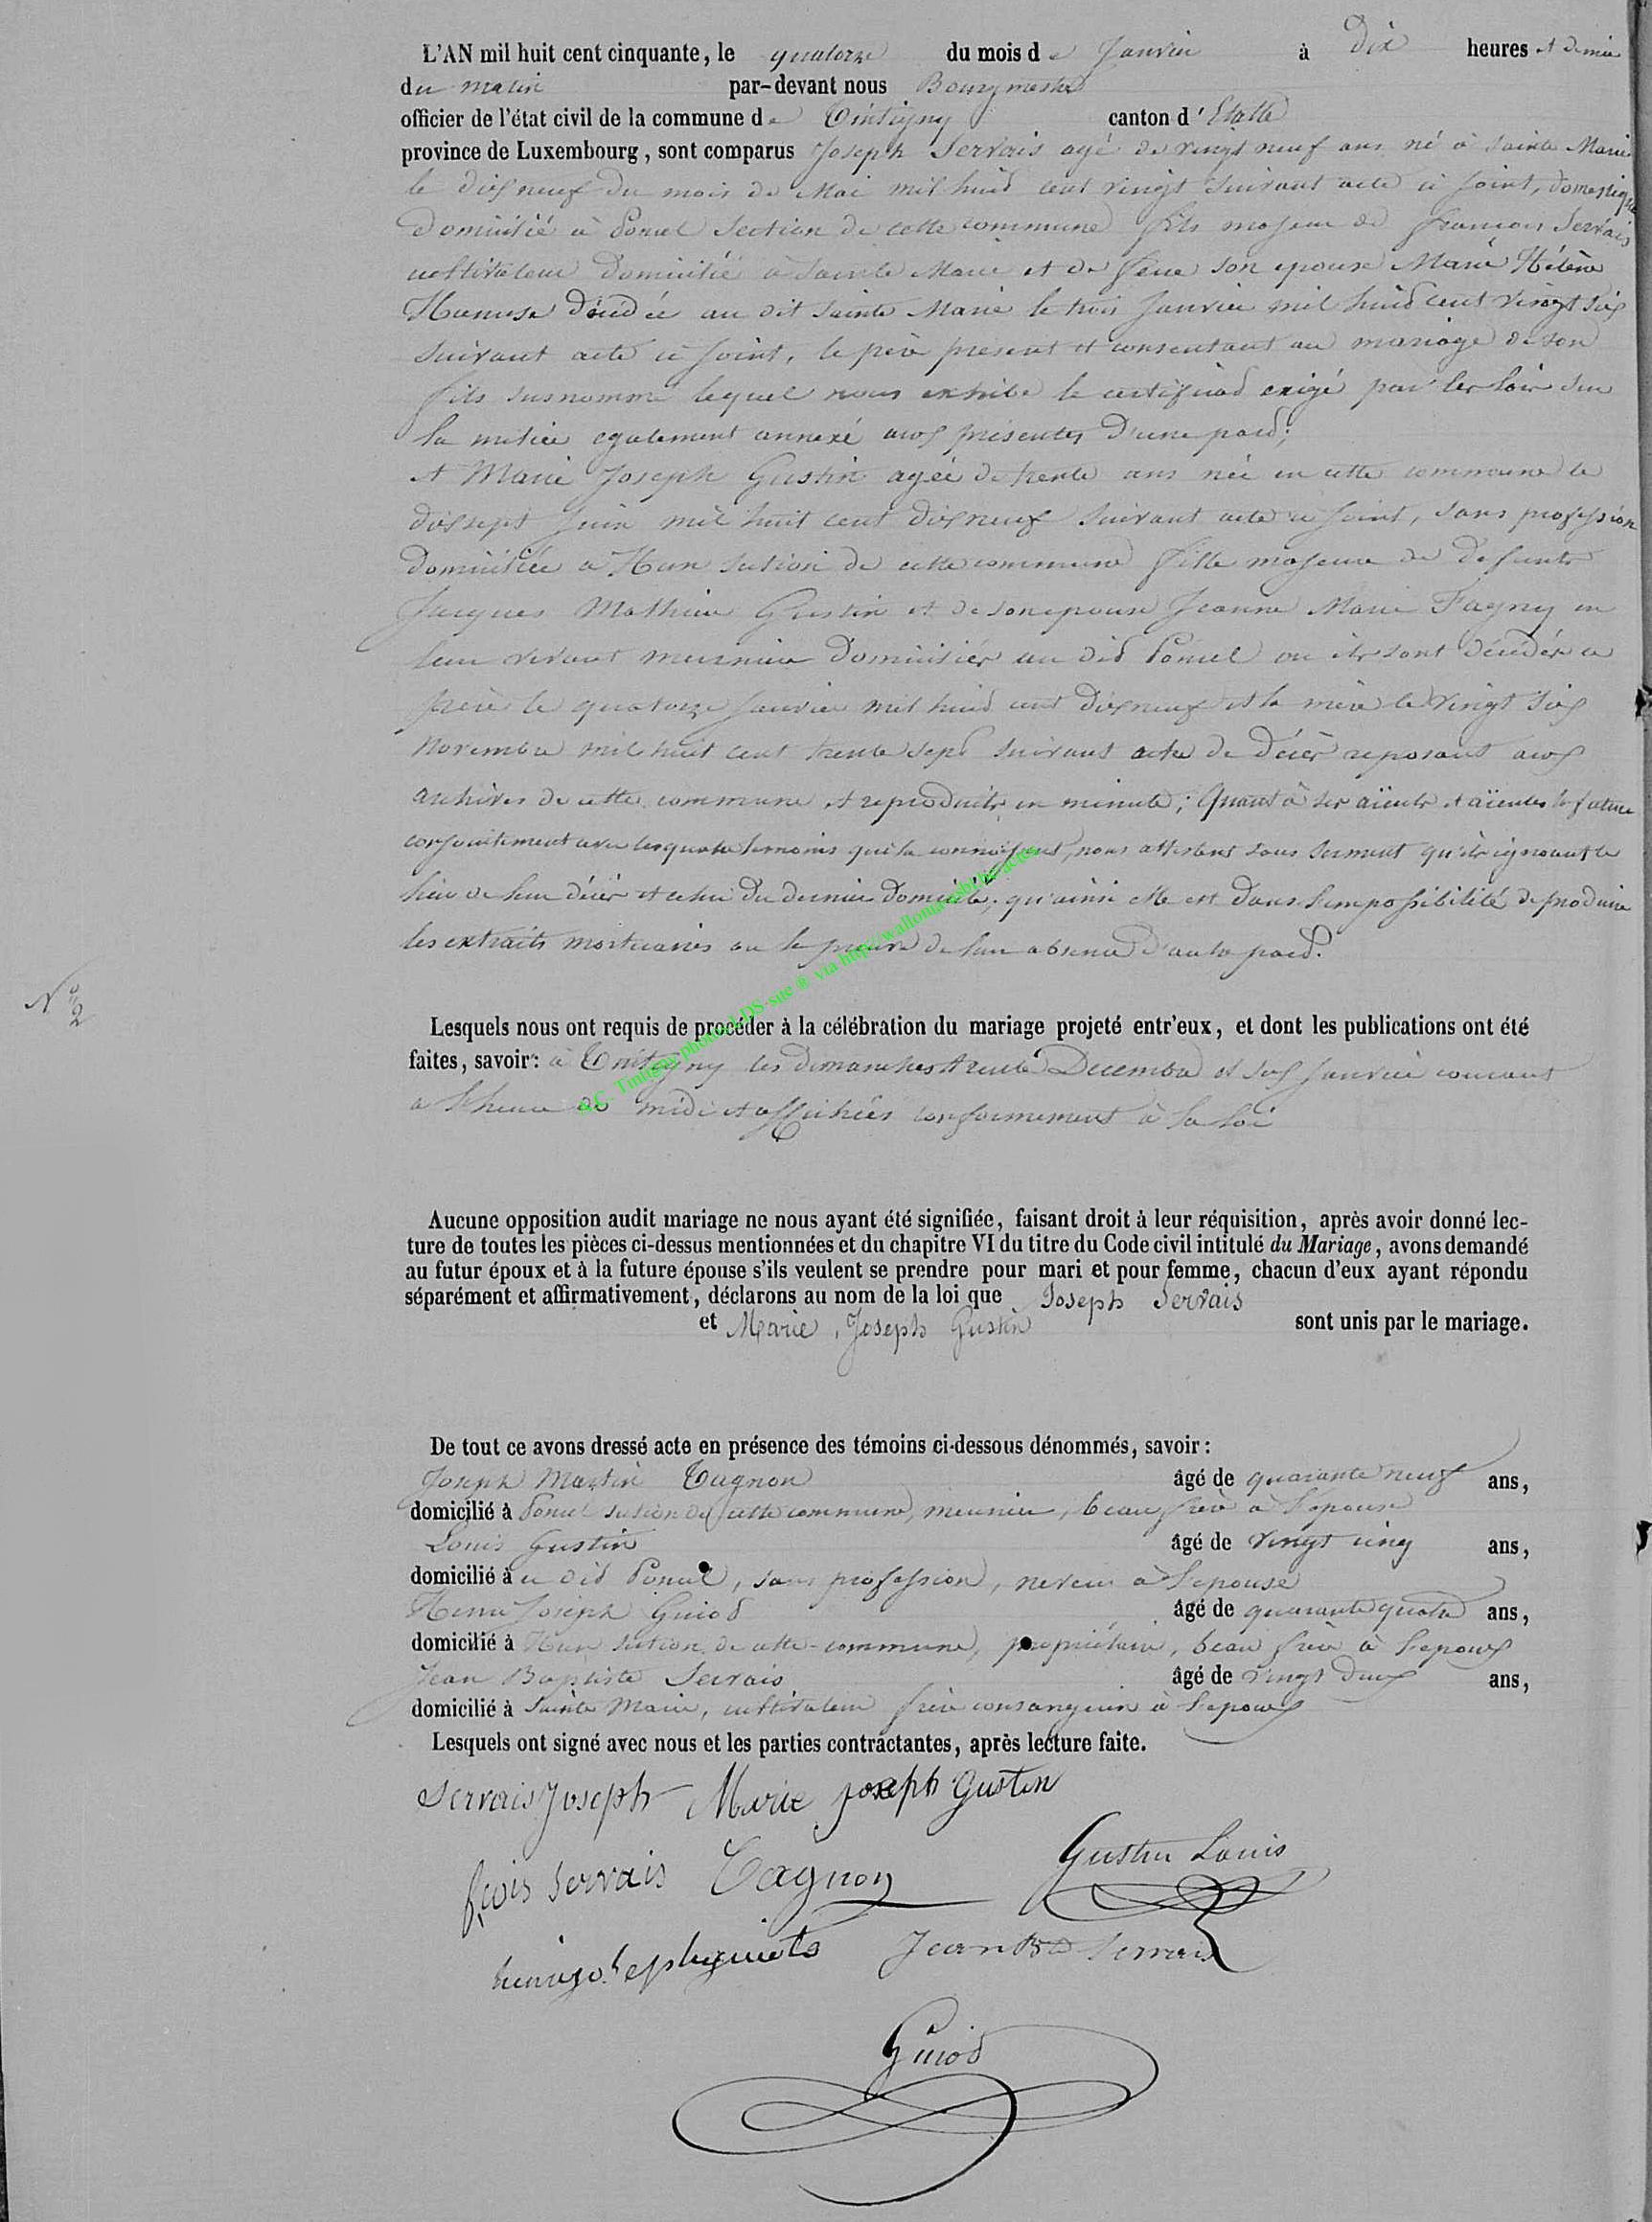 L'AN mil huit cent cinquante, le quatorze du mois de Janvier à Dix heures et demie
du matin par-devant nous Bourgmestre
officier de l'état civil de la commune de Tintigny canton d'Etalle
province de Luxembourg, sont comparus Joseph Servais agé de vingt neuf ans né à Sainte Marie
le dix neuf du mois de Mai mil huit cent vingt suivant acte ci joint, domestique
Domicilié à Poncel Section de cette commune fils majeur de François Servais
cultivateur Domicilié à Sainte Marie et de feue son epouse Marie Hélène
Hanuse décédée au dit Sainte Marie le trois Janvier mil huit cent vingt six
suivant acte ci joint, le père présent et consentant au mariage de son
fils susnommé lequel nous exhibe le certificat exigé par les lois sur
la milice egalement annexé aux présentes D'une part;
et Marie Joseph Gustin agée de trente ans née en cette commune le
dix sept Juin mil huit cent dix neuf suivant acte ci joint, sans profession
Domiciliée à Han section de cette commune fille majeure de defunts
Jacques Mathieu Gustin et de son epouse Jeanne Marie Fagny en
leur vivant meunier Domiciliés au dit Poncel ou ils sont décédés le
père le quatorze Janvier mil huit cent dix neuf et la mère le vingt six
Novembre mil huit cent trente sept suivant acte de décès reposant aux
archives de cette commune et reproduits en minute; Quant à ses aïeuls et aïeules la future
conjointement avec les quatre temoins qui la connoissent, nous attestent sous serment qu'ils ignorent le
lieu de leur décès et celui du dernier Domicile; qu'ainsi elle est dans l'impossibilité de produire
les extraits mortuaires ou la preuve de leur absence d'autre part.
N° 2
Lesquels nous ont requis de procéder à la célébration du mariage projeté entr'eux, et dont les publications ont été
faites, savoir: à Tintigny les dimanches trente Decembre et six Janvier courant
a l'heure de midi et affichées conformement à la loi
A.C. Tintigny photos LDS-site ® via http://wallonia-asbl.be/actes
Aucune opposition audit mariage ne nous ayant été signifiée, faisant droit à leur réquisition, après avoir donné lec-
ture de toutes les pièces ci-dessus mentionnées et du chapitre VI du titre du Code civil intitulé du Mariage, avons demandé
au futur époux et à la future épouse s'ils veulent se prendre pour mari et pour femme, chacun d'eux ayant répondu
séparément et affirmativement, déclarons au nom de la loi que Joseph Servais
et Marie, Joseph Gustin sont unis par le mariage.
De tout ce avons dressé acte en présence des témoins ci-dessous dénommés, savoir:
Joseph Martin Tagnon âgé de quarante neuf ans,
domicilié à Poncel section de cette commune, meunier, beau frère à l'epouse
Louis Gustin âgé de vingt cinq ans,
domicilié à u dit Poncel, sans profession, neveu à l'epouse
Henri Joseph Guiot âgé de quarante quatre ans,
domicilié à Han section de cette commune, propriétaire, beau frère à l'epoux
Jean Baptiste Servais âgé de vingt deux ans,
domicilié à Sainte Marie, cultivateur frère consanguin à l'epoux
Lesquels ont signé avec nous et les parties contractantes, après lecture faite.
Servais Joseph Marie Joseph Gustin
fçois Servais Tagnon Gustin Louis
Jean Bte Servais
Guiot